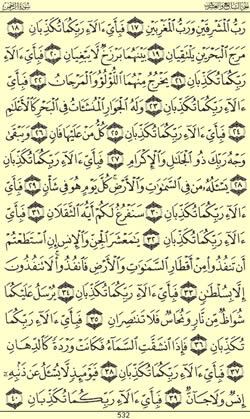 الجزء السابع والعشرون سورة الرحمن
رَبُّ ٱلْمَشْرِقَيْنِ وَرَبُّ ٱلْمَغْرِبَيْنِ ١٧ فَبِأَىِّ ءَالَآءِ رَبِّكُمَا تُكَذِّبَانِ ١٨
مَرَجَ ٱلْبَحْرَيْنِ يَلْتَقِيَانِ ١٩ بَيْنَهُمَا بَرْزَخٌ لَّا يَبْغِيَانِ ٢٠ فَبِأَىِّ ءَالَآءِ
رَبِّكُمَا تُكَذِّبَانِ ٢١ يَخْرُجُ مِنْهُمَا ٱللُّؤْلُؤُ وَٱلْمَرْجَانُ ٢٢ فَبِأَىِّ
ءَالَآءِ رَبِّكُمَا تُكَذِّبَانِ ٢٣ وَلَهُ ٱلْجَوَارِ ٱلْمُنشَـَٔاتُ فِى ٱلْبَحْرِ كَٱلْأَعْلَٰمِ
٢٤ فَبِأَىِّ ءَالَآءِ رَبِّكُمَا تُكَذِّبَانِ ٢٥ كُلُّ مَنْ عَلَيْهَا فَانٍ ٢٦ وَيَبْقَىٰ
وَجْهُ رَبِّكَ ذُو ٱلْجَلَٰلِ وَٱلْإِكْرَامِ ٢٧ فَبِأَىِّ ءَالَآءِ رَبِّكُمَا تُكَذِّبَانِ
٢٨ يَسْـَٔلُهُۥ مَن فِى ٱلسَّمَٰوَٰتِ وَٱلْأَرْضِ كُلَّ يَوْمٍ هُوَ فِى شَأْنٍ ٢٩ فَبِأَىِّ
ءَالَآءِ رَبِّكُمَا تُكَذِّبَانِ ٣٠ سَنَفْرُغُ لَكُمْ أَيُّهَ ٱلثَّقَلَانِ ٣١ فَبِأَىِّ
ءَالَآءِ رَبِّكُمَا تُكَذِّبَانِ ٣٢ يَٰمَعْشَرَ ٱلْجِنِّ وَٱلْإِنسِ إِنِ ٱسْتَطَعْتُمْ
أَن تَنفُذُوا۟ مِنْ أَقْطَارِ ٱلسَّمَٰوَٰتِ وَٱلْأَرْضِ فَٱنفُذُوا۟ لَا تَنفُذُونَ
إِلَّا بِسُلْطَٰنٍ ٣٣ فَبِأَىِّ ءَالَآءِ رَبِّكُمَا تُكَذِّبَانِ ٣٤ يُرْسَلُ عَلَيْكُمَا
شُوَاظٌ مِّن نَّارٍ وَنُحَاسٌ فَلَا تَنتَصِرَانِ ٣٥ فَبِأَىِّ ءَالَآءِ رَبِّكُمَا
تُكَذِّبَانِ ٣٦ فَإِذَا ٱنشَقَّتِ ٱلسَّمَآءُ فَكَانَتْ وَرْدَةً كَٱلدِّهَانِ
٣٧ فَبِأَىِّ ءَالَآءِ رَبِّكُمَا تُكَذِّبَانِ ٣٨ فَيَوْمَئِذٍ لَّا يُسْـَٔلُ عَن ذَنۢبِهِۦٓ
إِنسٌ وَلَا جَآنٌّ ٣٩ فَبِأَىِّ ءَالَآءِ رَبِّكُمَا تُكَذِّبَانِ ٤٠
532